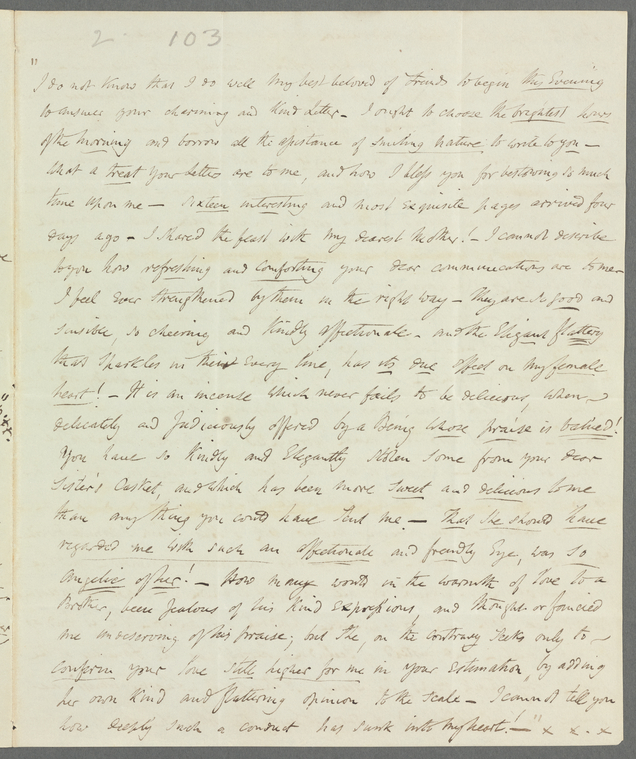 2 103
"
I do not know that I do well my best beloved of Friends to begin this Evening
to answer your charming and kind Letter – I ought to choose the brightest hours
of the Morning and borrow all the assistance of smiling nature to write to you –
what a treat your Letters are to me, and how I bless you for bestowing so much
time upon me – sixteen interesting and most exquisite pages arrived four
days ago – I shared the feast with my dearest Mother! – I cannot describe
to you how refreshing and comforting your dear communications are to me –
I feel ever strengthened by them in the right way – they are so good and
sensible, so cheering and kindly affectionate – and the Elegant flattery
that sparkles in their every line, has its due effect on my female
heart! – It is an incense which never fails to be delicious, when
delicately and Judiciously offered by a Being whose praise is valued!
You have so kindly and Elegantly stolen some from your dear
Sister's Casket, and which has been more sweet and delicious to me
than any thing you could have sent me. – That she should have
regarded me with such an affectionate and friendly Eye, was so
angelic of her! – How many would in the warmth of love to a
Brother, been jealous of his kind Expressions, and thought or fancied
me undeserving of his praise; but she, on the contrary seeks only to
confirm your love still higher for me in your estimation, by adding
her own kind and flattering opinion to the scale – I cannot tell you
how deeply such a conduct has sunk into my heart! –" x x . x